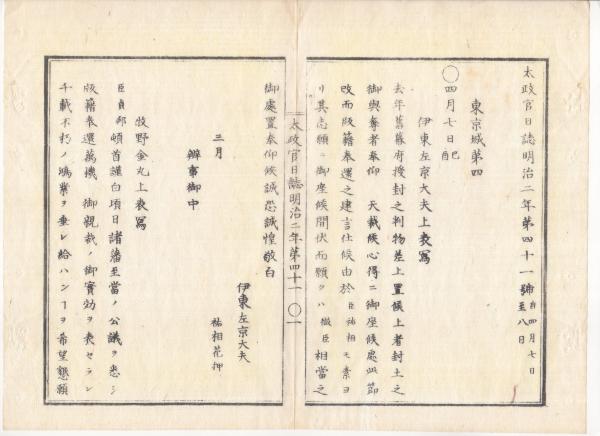 太政官日誌明治二年第四十一號 自四月七日至八日
東京城第四
〇四月七日 己酉
伊東左京大夫上表寫
去年舊幕府授封之判物差上置候上者封土之
御與奪者奉仰 天裁候心得ニ御座候處此節
改而版籍奉還之建言仕候由於 臣祐相モ素ヨ
リ其志願ニ御座候間伏而願クハ 微臣 相當之
御處置奉仰候誠恐誠惶敬白
伊東左京大夫
三月 祐相花押
辨事御中
牧野金丸上表寫
臣貞邦頓首謹白頃日諸藩至當ノ公議ヲ悉シ
版籍奉還萬機 御親裁ノ御實効ヲ表セラレ
千載不朽ノ鴻業ヲ垂レ給ハンヿヲ希望懇願
太政官日誌明治二年第四十一 〇一